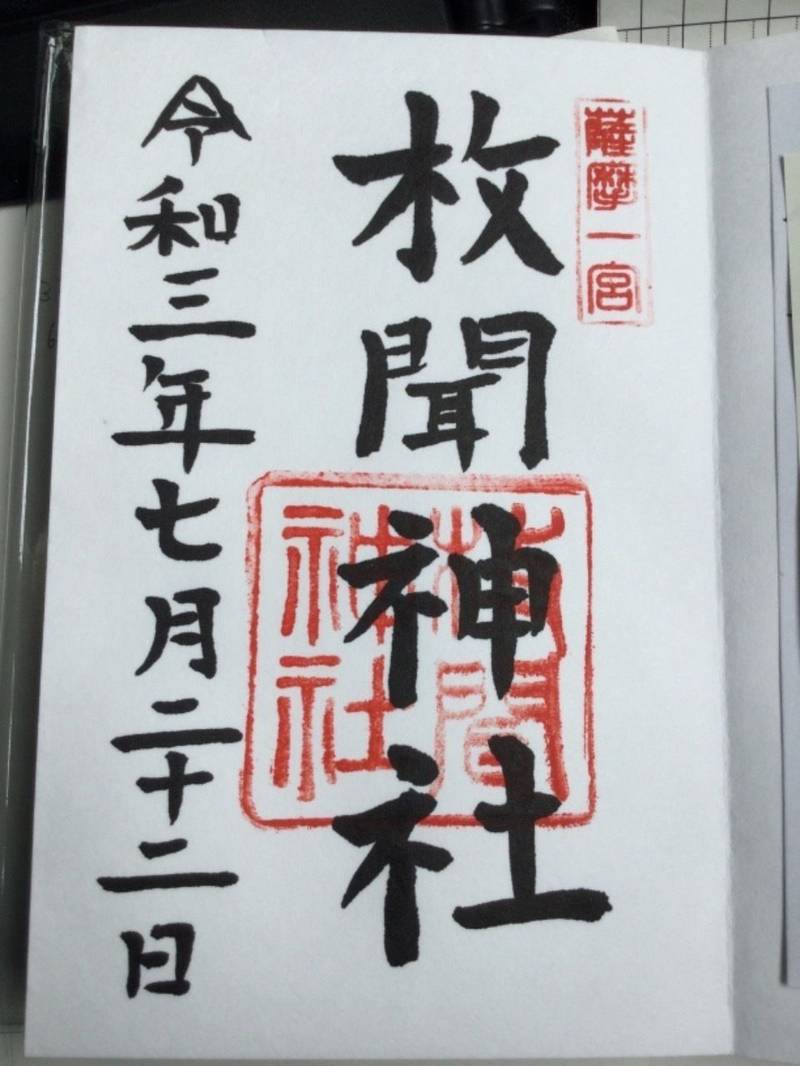 薩摩一宮
枚聞神社
枚聞
神社
令和三年七月二十二日